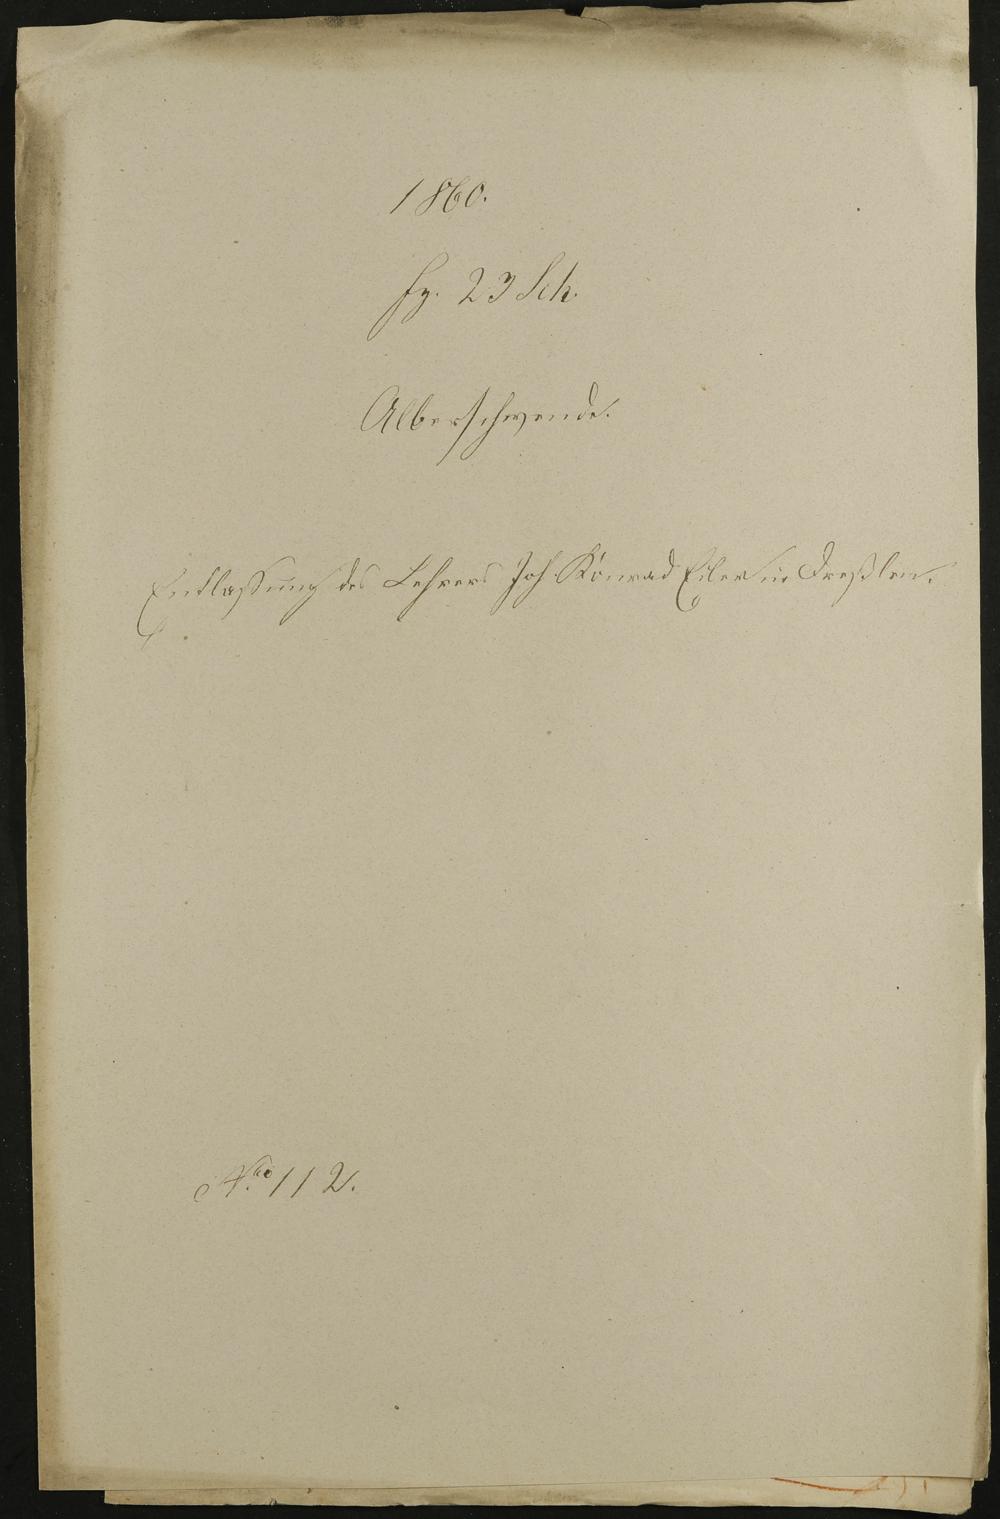 1860.
Fz. 23 Sch.
Alberschwende.
Entlassung des Lehrers Joh Konrad Eiler in Dreßlen.
Nro 112.